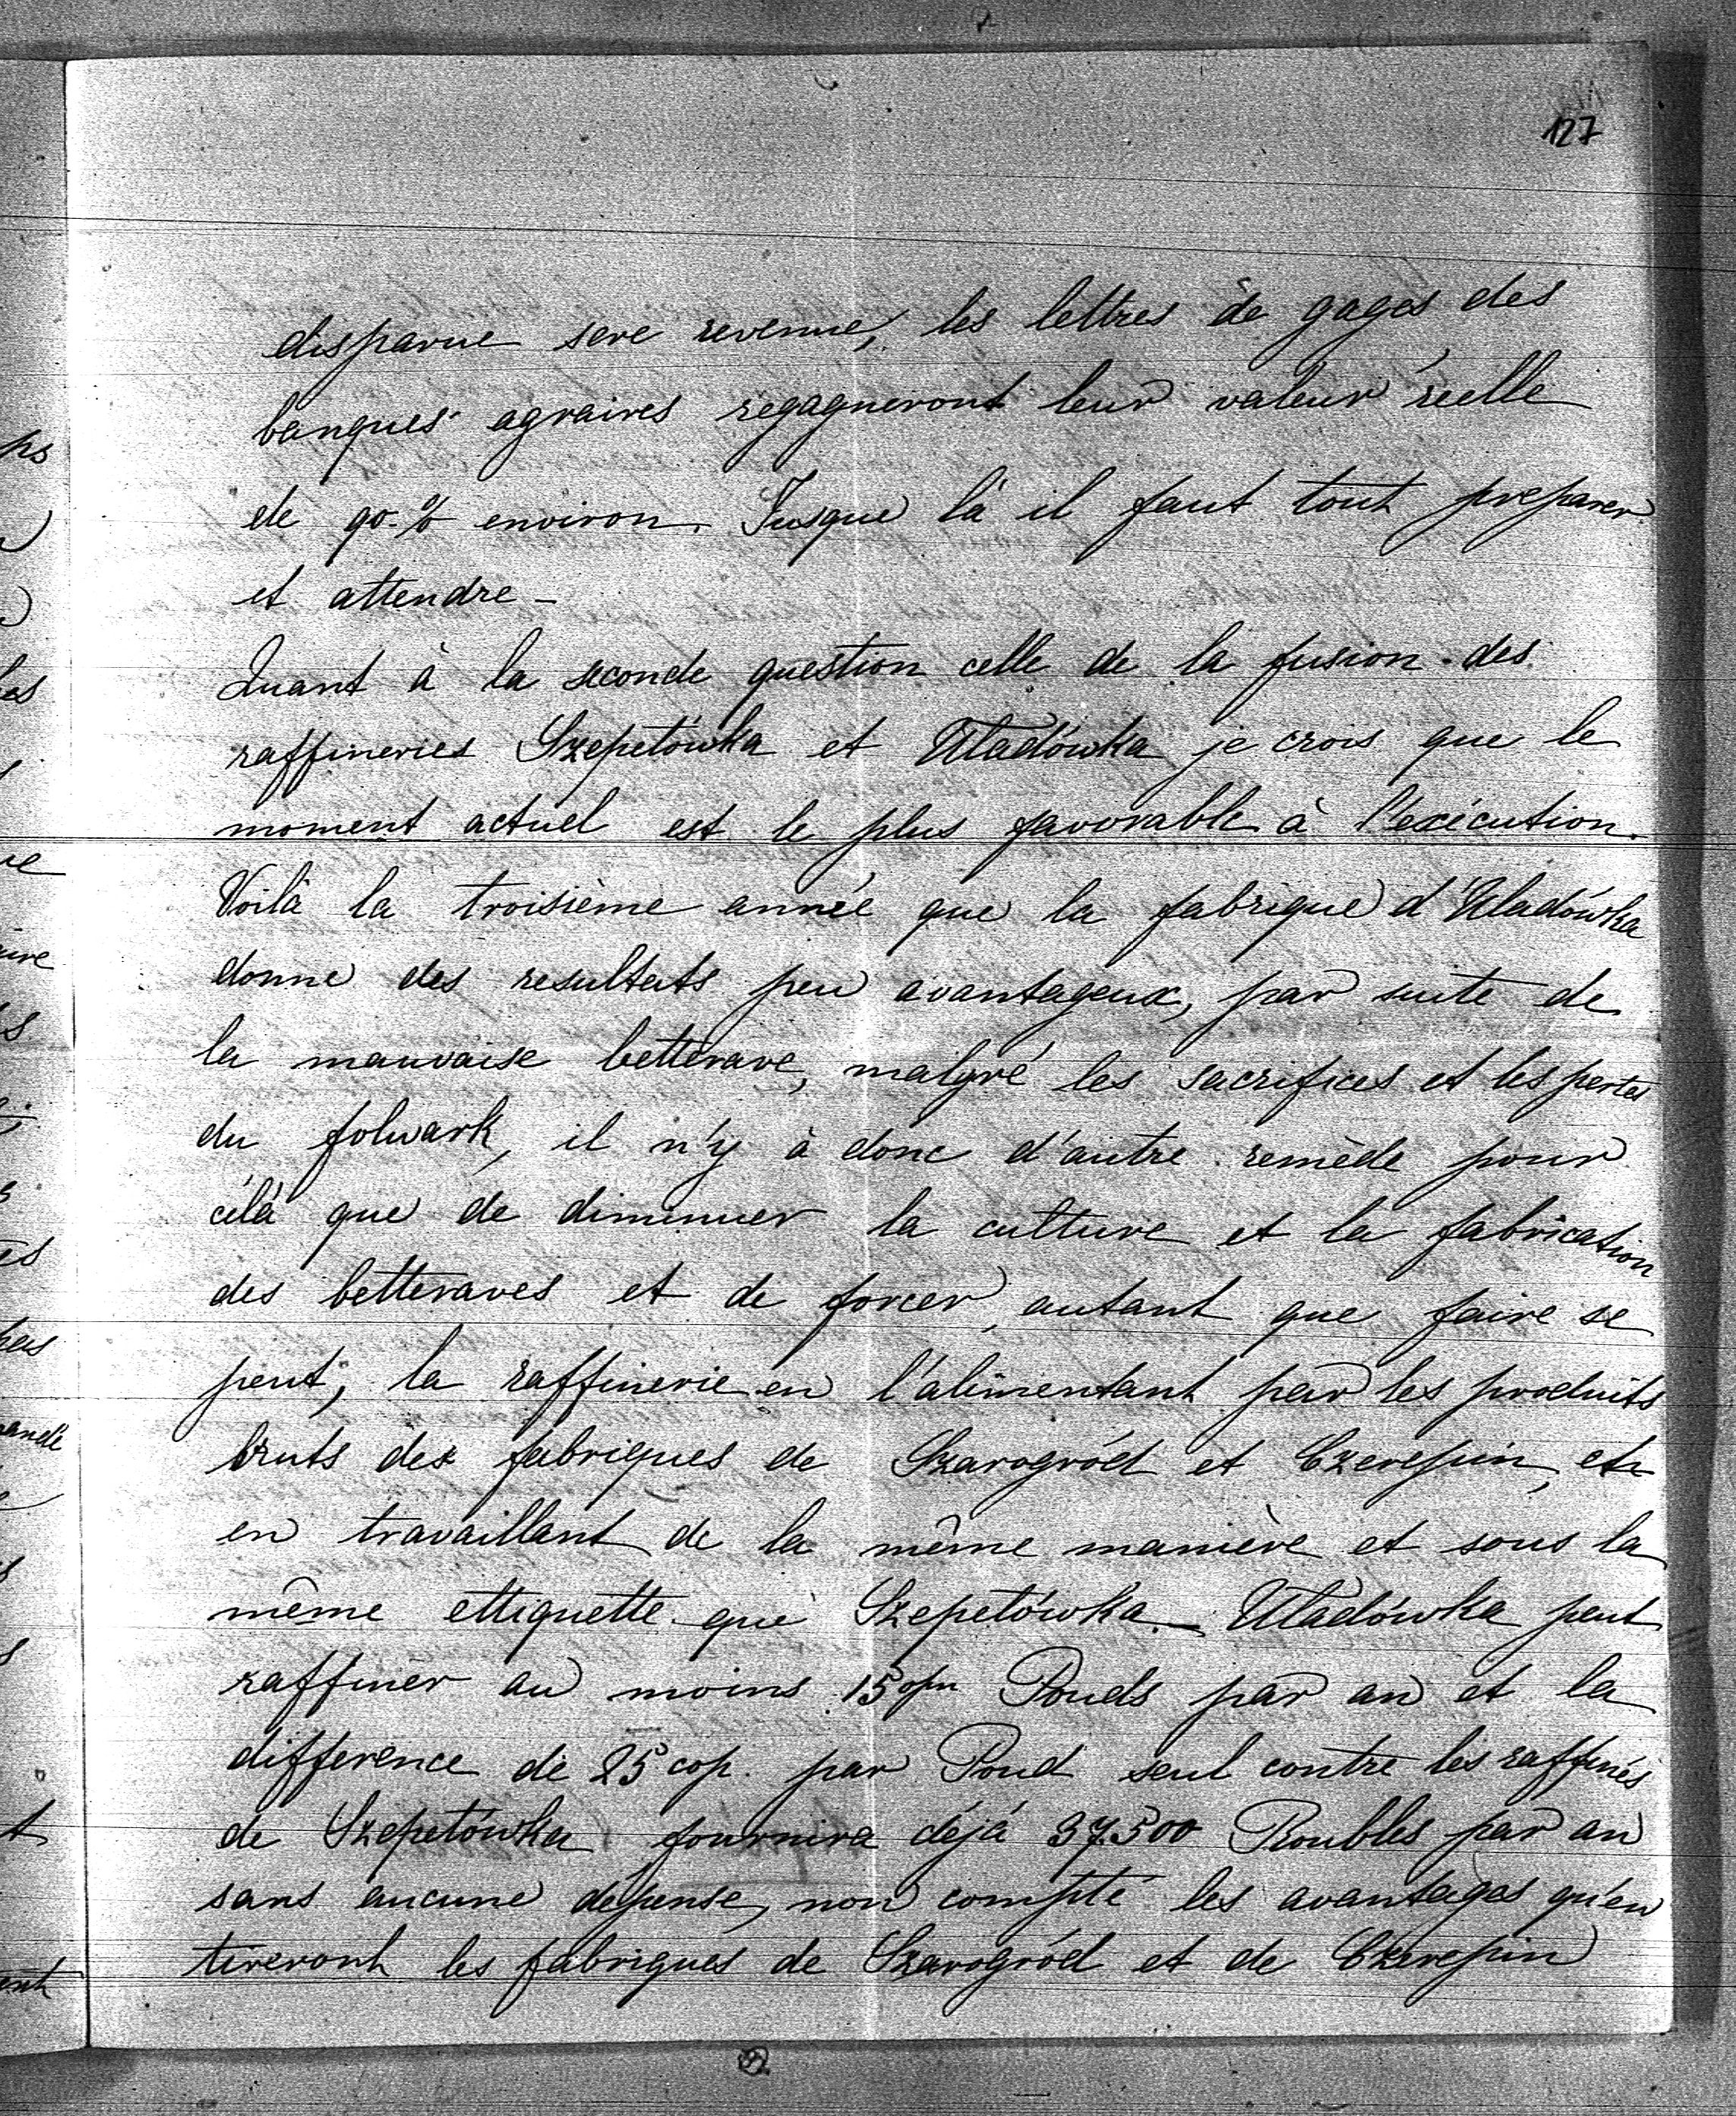 127
disparue sere revenue, les lettres de gages des
banques agraires regagneront leur valeur réelle
de 90.% environ. Jusque là il faut tout preparer
et attendre –
Quant à la seconde question celle de la fusion des
raffineries Szepetówka et Uładówka je crois que le
moment actuel est le plus favorable à l'exécution.
Voilà la troisième année que la fabrique d'Uladówka
donne des resultats peu avantageux, par suite de
la mauvaise betterave, malgré les sacrifices et les pertes
du folwark, il n'y à donc d'autre remède pour
célà que de diminuer la culture et la fabrication
des betteraves et de forcer, autant que faire se
peut, la raffinerie en l'alimentant par les produits
bruts des fabriques de Szarogród et Czerepin, et
en travaillant de la même manière et sous la
même ettiquette que Szepetówka. Uładówka peut
raffiner au moins 15 Pouds par an et la
difference de 25 cop. par Poud seul contre les raffinés
de Szepetówka fournira déjà 37.500 Roubles par an
sans aucune depense, non compté les avantages qu'en
tireront les fabriques de Szarogród et de Czerepin